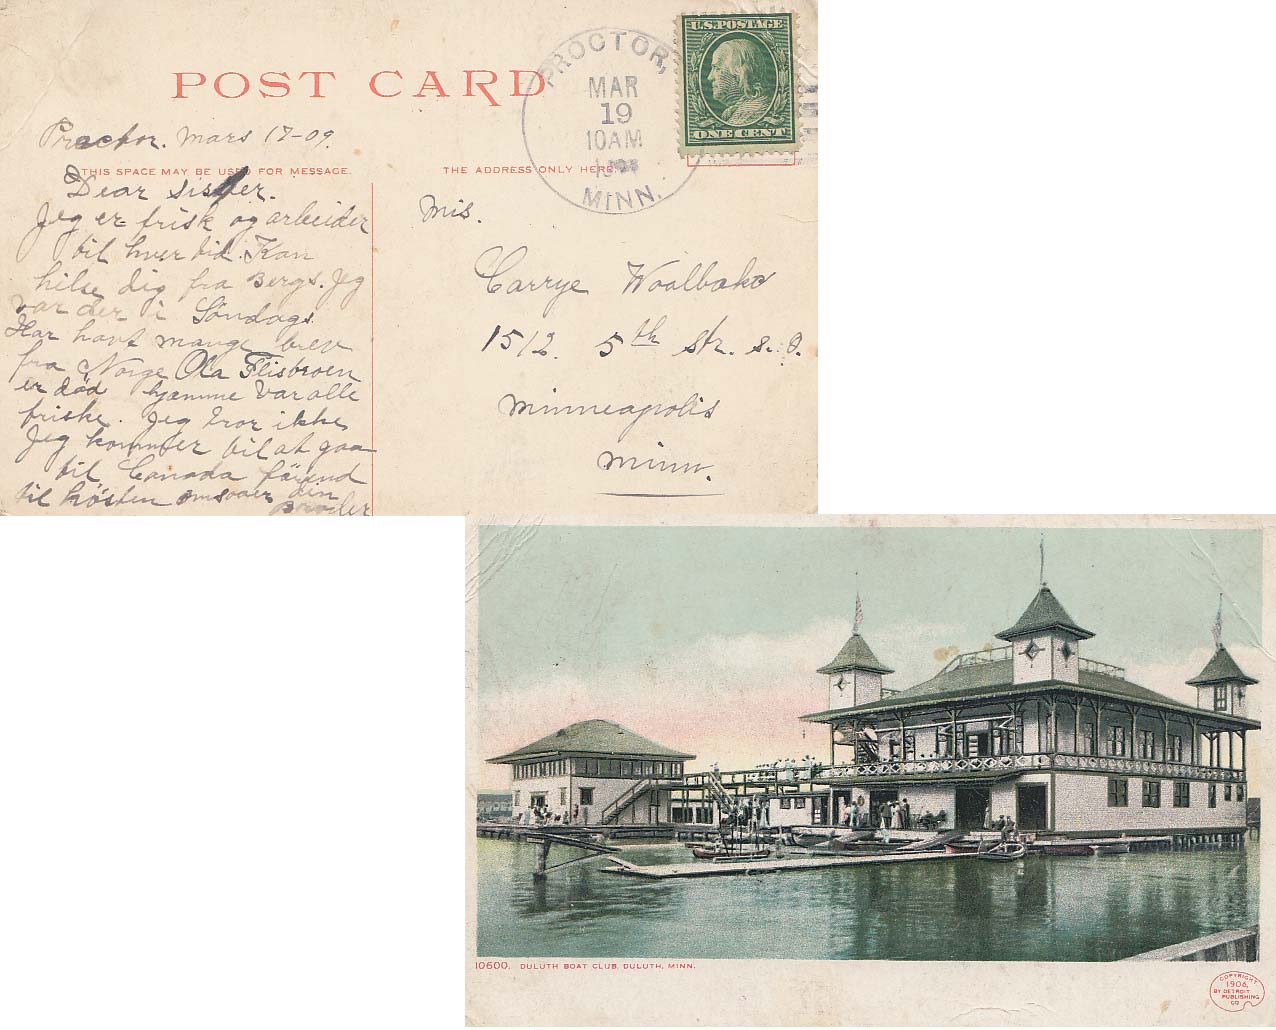 POST CARD
PROCTOR,
MAR
19
10AM
MINN.
U.S. POSTAGE
ONE CENT
Proctor. Mars 17-09.
THIS SPACE MAY BE USED FOR MESSAGE.
THE ADDRESS ONLY HERE
Dear sister.
Jeg er frisk og arbeider
til hver tid. Kan
hilse dig fra Bergs. Jeg
var der i Söndags.
Har havt mange brev
fra Norge Ola Flisbroen
er död hjemme var alle
friske. Jeg tror ikke
Jeg kommer til at gaa
til Canada förend
til hösten din
Broder
Mis.
Carrye
1512. 5th str. s.
Minneapolis
Minn.
10600. DULUTH BOAT CLUB, DULUTH, MINN.
COPYRIGHT,
1906,
BY DETROIT
PUBLISHING
CO